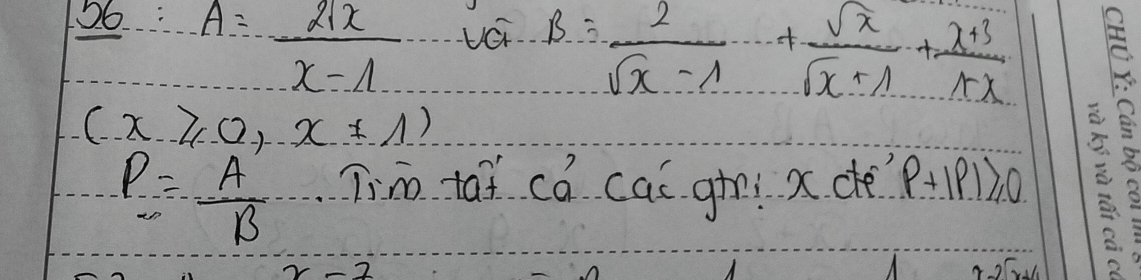 56 : A = 2√x / (x - 1) và B = 2 / (√x - 1) + √x / (√x + 1) + (x+3) / (1-x)
(x ≥ 0, x ≠ 1)
P = A / B . Tìm tất cả các gtrị x để P + |P| ≥ 0
CHÚ Ý: Cán bộ coi
và ký và tất cả